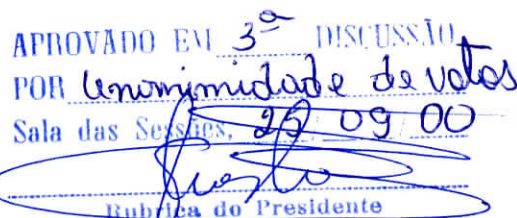 APROVADO EM 3ª DISCUSSÃO
POR Unanimidade de votos
Sala das Sessões, 25 09 00
Rubrica do Presidente